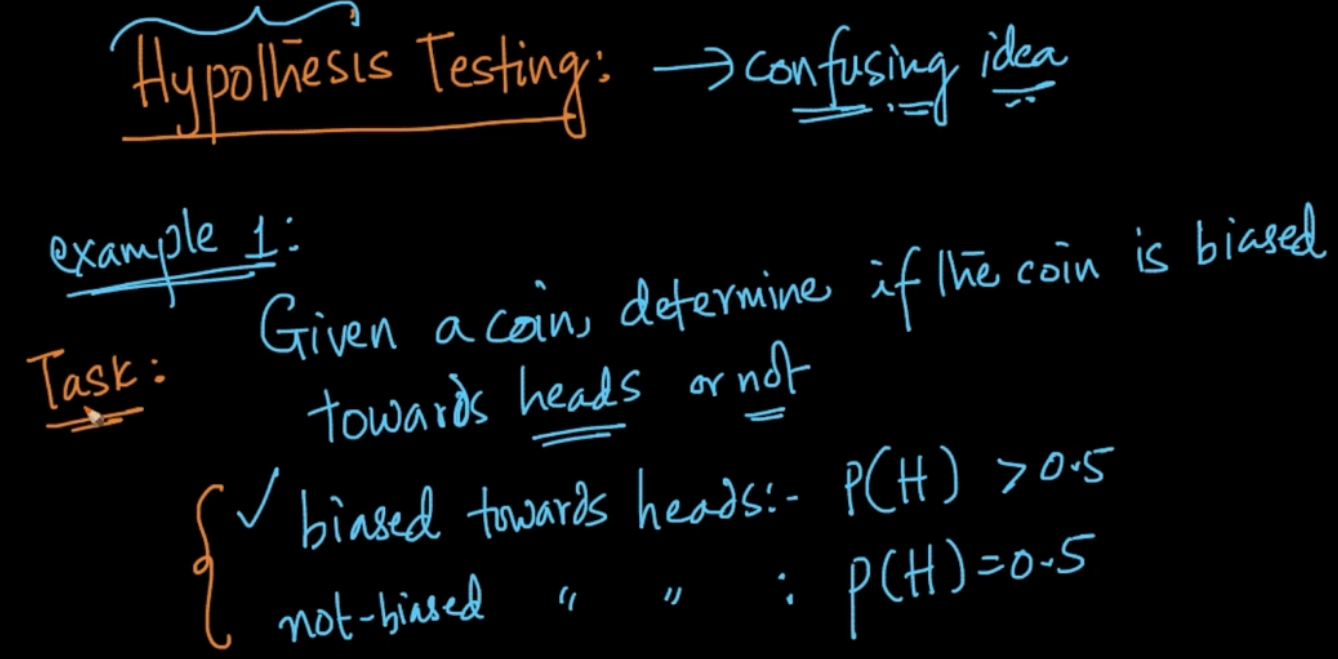 Hypothesis Testing: → confusing idea
example 1:
Given a coin, determine if the coin is biased
Task:
towards heads or not
✓ biased towards heads:- P(H) > 0.5
not-biased " " : P(H) = 0.5